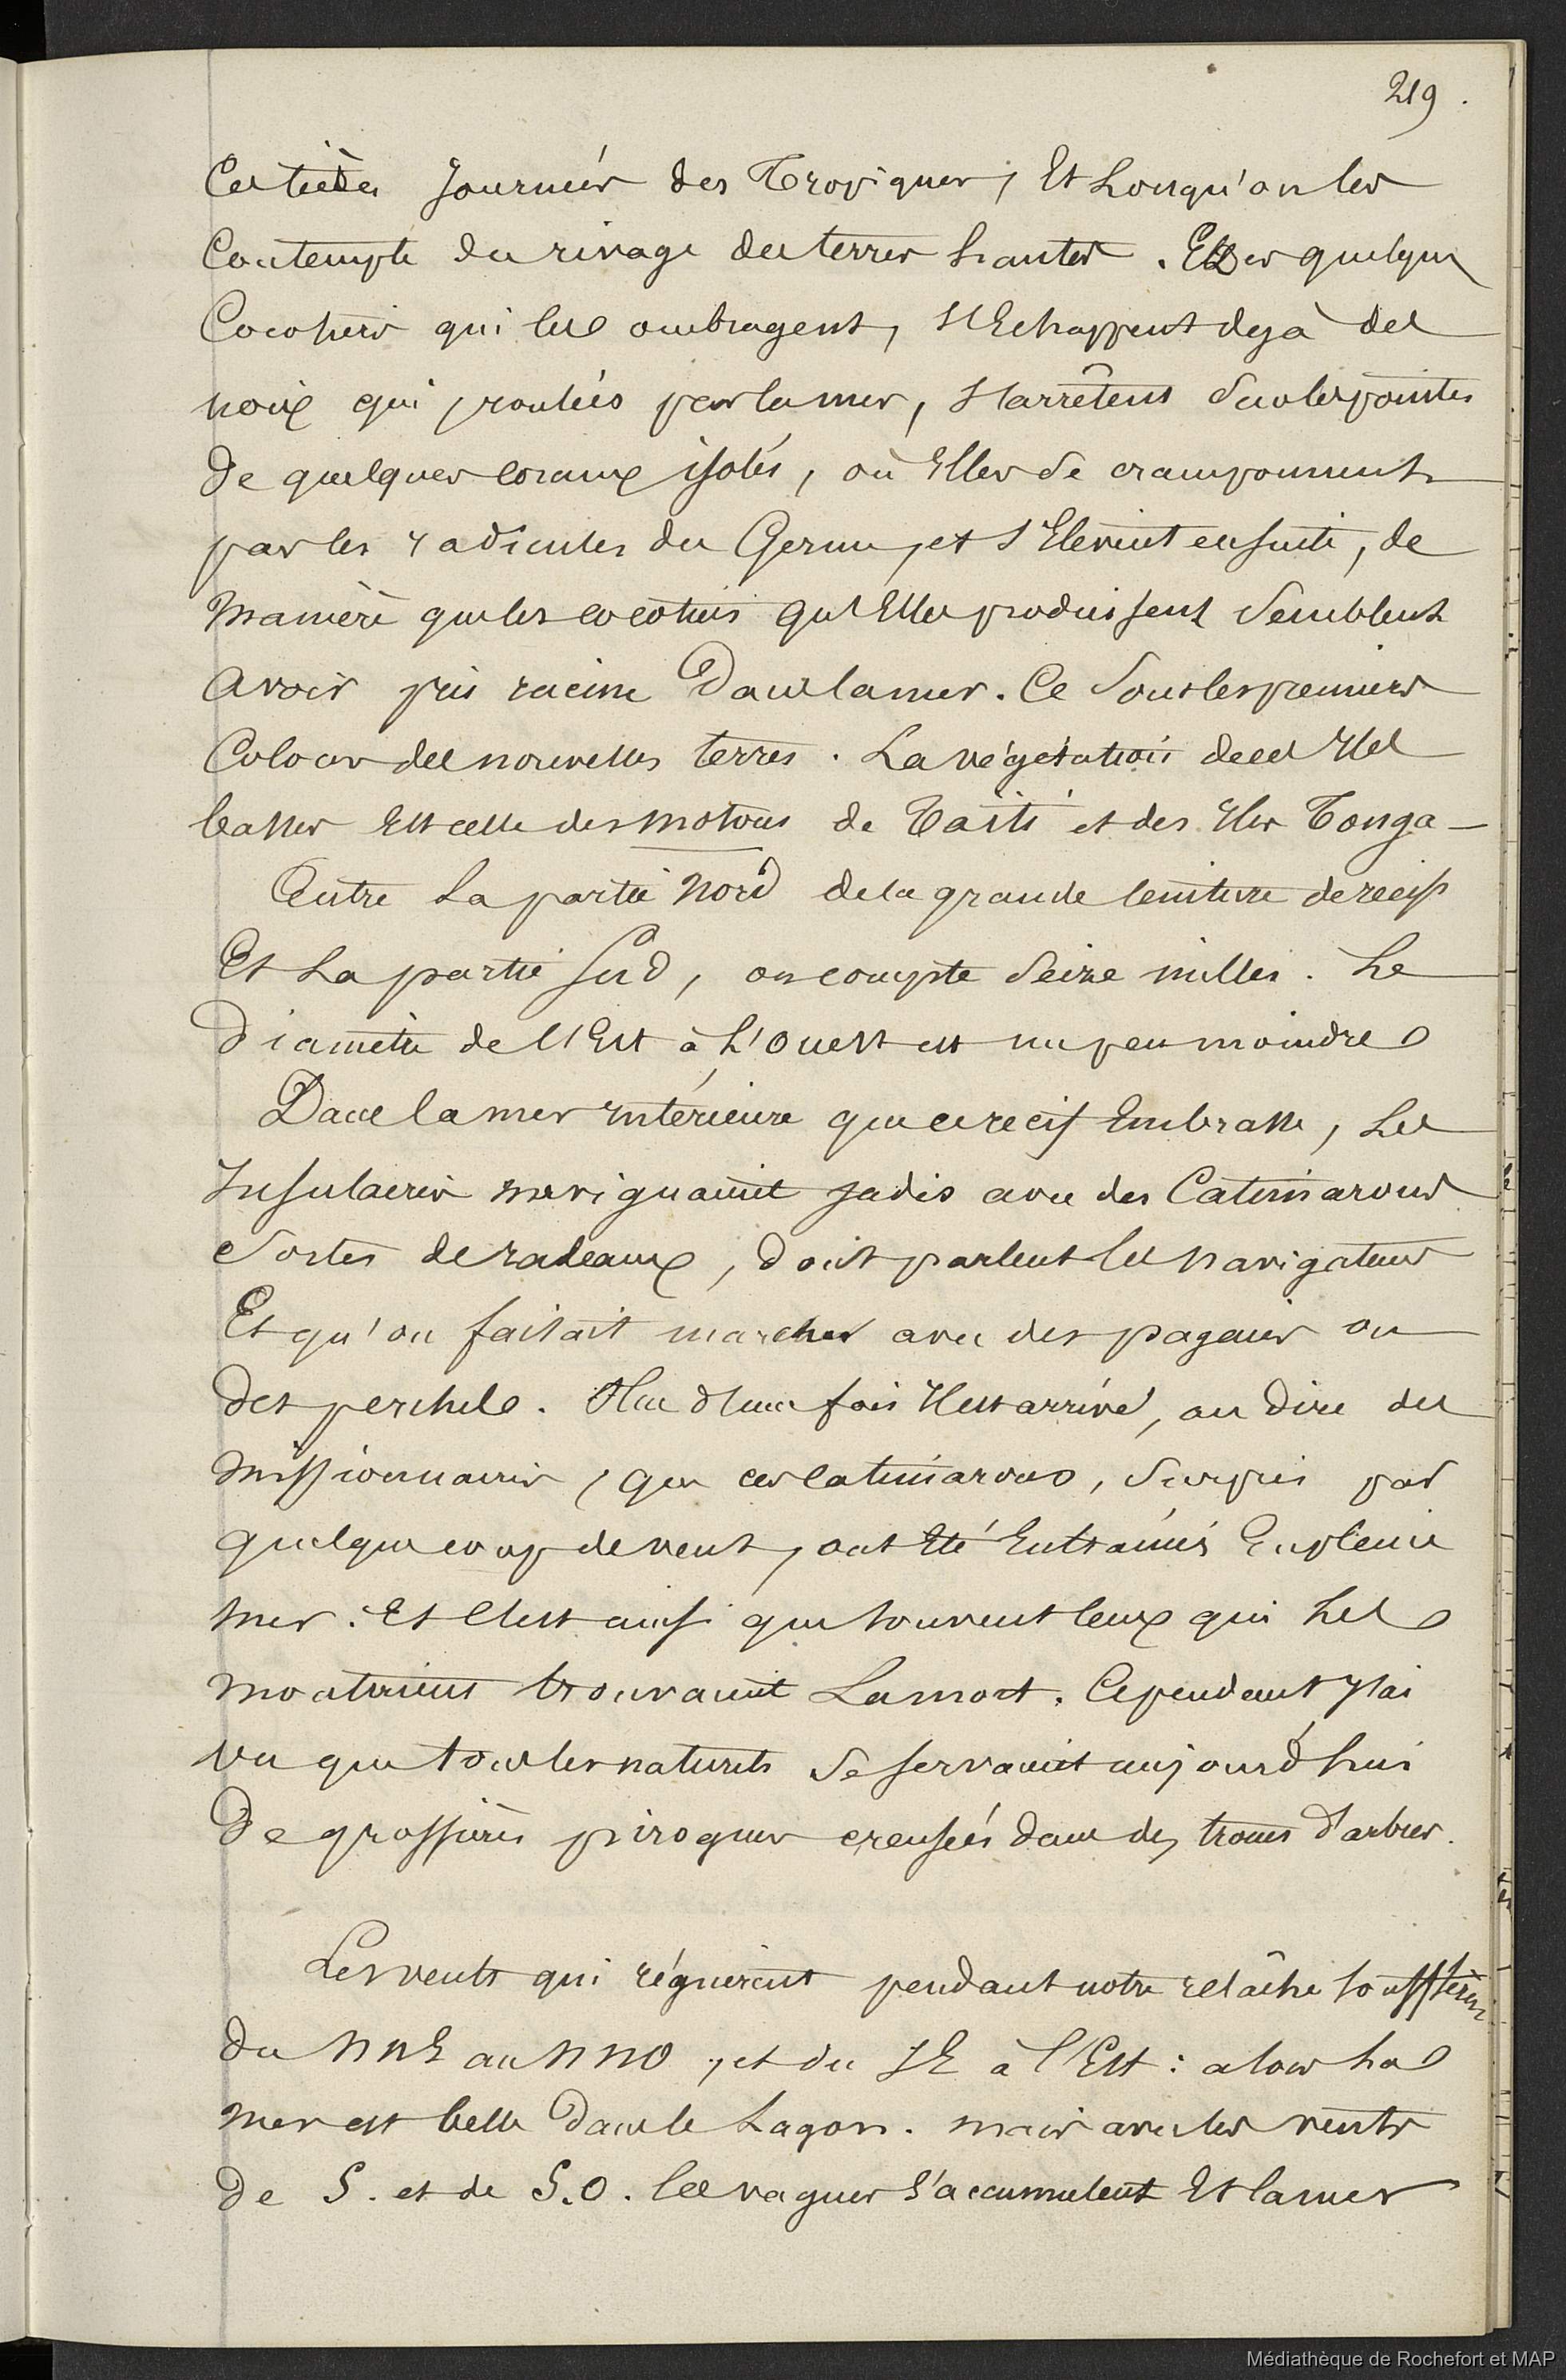 219.
Ces tièdes Journées des Tropiques, Et Lorsqu'on les
Contemple du rivage des terres hautes. Et des quelques
Cocotiers qui les ombragent, s'Echappent déjà des
noix qui, roulées par la mer, s'arrêtent sur les pointes
de quelques coraux isolés, où Elles se cramponnent
par les radicules du Germe, et s'Elèvent ensuite, de
manière que les cocotiers qu'Elles produisent semblent
avoir pris racine Dans la mer. Ce sont les premiers
Colons des nouvelles terres. La végétation de ces Iles
basses Est celle des motous de Taïti et des Iles Tonga –
Entre La partie Nord de la grande ceinture de recifs
Et La partie Sud, on compte Seize milles. Le
Diamètre de l'Est à L'Ouest est un peu moindre
Dans la mer Intérieure que ce recif Embrasse, Les
Insulaires naviguaient jadis avec des Catimarous
Sortes de radeaux, dont parlent les navigateurs
Et qu'on faisait marcher avec des pagaies ou
des perches. Plus d'une fois Il est arrivé, au dire des
missionnaires, que ces catimarous, surpris par
quelque coup de vent, ont Eté Entrainés En pleine
mer. Et c'est ainsi que souvent ceux qui Les
montaient trouvaient La mort. Cependant j'ai
vu que tous les naturels se servaient aujourd'hui
De grossières pirogues creusées dans des troncs d'arbres.
Les vents qui régnèrent pendant notre relâche soufflèrent
du NNE au NNO, et du SE à l'Est: alors La
mer est belle Dans le Lagon. mais avec les vents
de S. et de S.O. les vagues s'accumulent Et la mer
Médiathèque de Rochefort et MAP